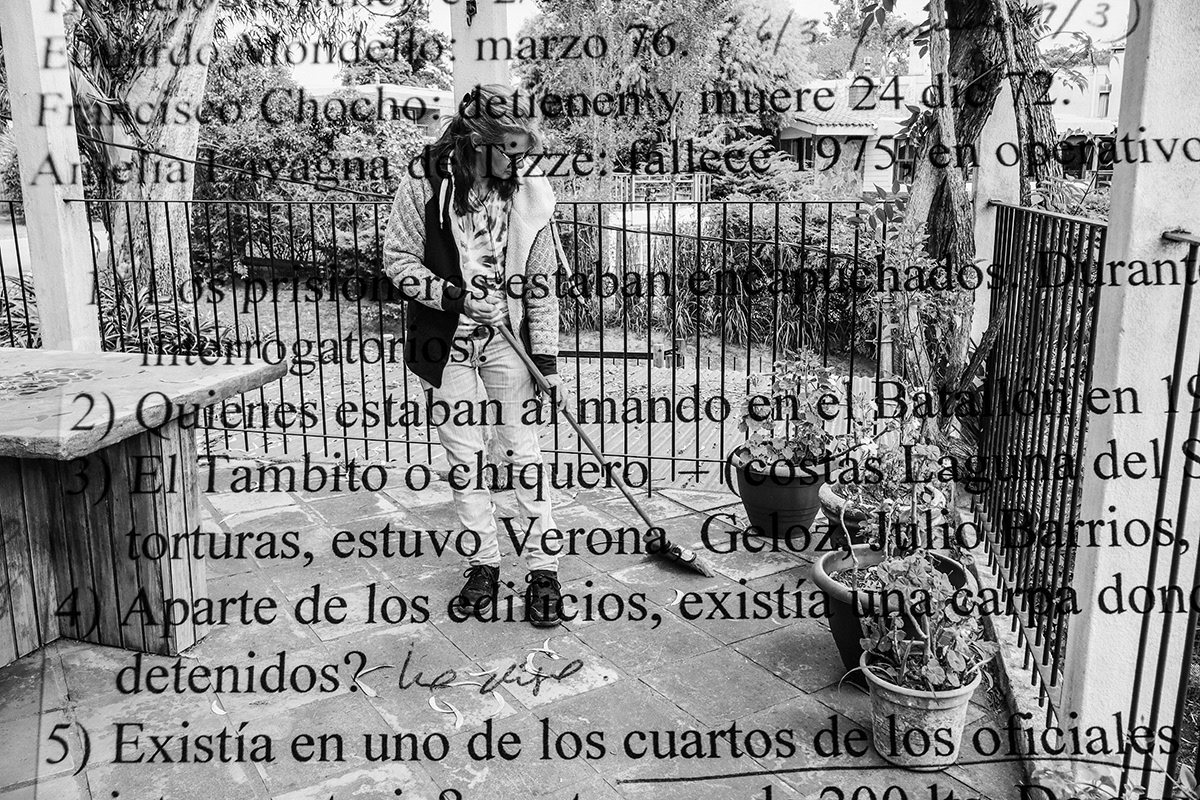 Eduardo Mondello: marzo 76.
Francisco Chocho: detienen y muere 24 dic 72.
Amelia Lavagna de Tizze: fallece 1975, en operativo
Los prisioneros estaban encapuchados. Durant
interrogatorios?
2) Quienes estaban al mando en el Batallón en 19
3) El Tambito o chiquero + (costas Laguna del S
torturas, estuvo Verona, Geloz, Julio Barrios,
4) Aparte de los edificios, existía una carpa dond
detenidos?
5) Existía en uno de los cuartos de los oficiales
200 lts. D